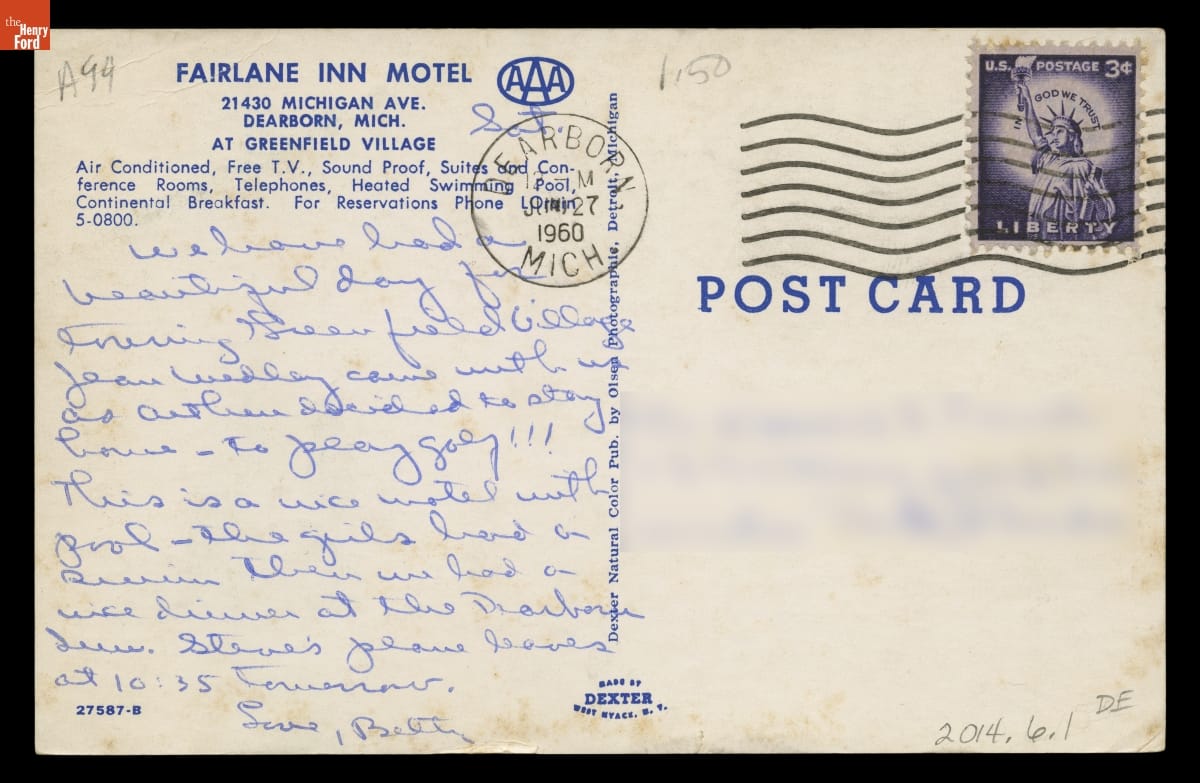 the
Henry
Ford
A94
1.50
FAIRLANE INN MOTEL
AAA
21430 MICHIGAN AVE.
DEARBORN, MICH.
AT GREENFIELD VILLAGE
Air Conditioned, Free T.V., Sound Proof, Suites and Con-
ference Rooms, Telephones, Heated Swimming Pool,
Continental Breakfast. For Reservations Phone LOrain
5-0800.
Sat.
DEARBORN
27
1960
MICH
U.S. POSTAGE 3¢
IN GOD WE TRUST
LIBERTY
POST CARD
We have had a
beautiful day for
touring Greenfield Village
Jean came with us
as Arthur decided to stay
home - to play golf!!!
This is a nice motel with
pool - the girls had a
swim then we had a
nice dinner at the Dearborn
Inn. Steve's plane leaves
at 10:35 tomorrow.
Love, Betty
27587-B
Dexter Natural Color Pub. by Olsen Photographic, Detroit, Michigan
MADE BY
DEXTER
WEST NYACK, N. Y.
2014.6.1
DE